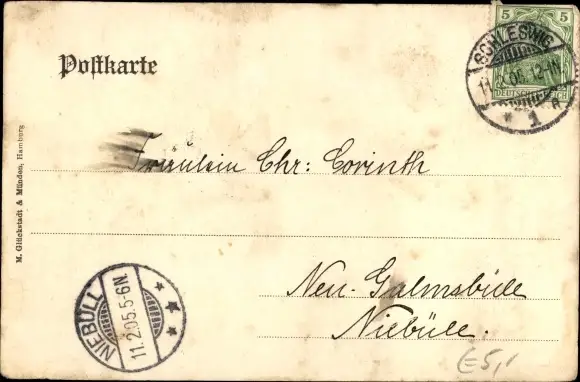 5 5
DEUTSCHES REICH
SCHLESWIG
12-1N
* 1 a
Postkarte
M. Glückstadt & Münden, Hamburg
Fräulein Chr: Corinth
Neu-Galmsbüll
Niebüll.
NIEBÜLL
11.2.05.5-6N.
* * *
€5,-